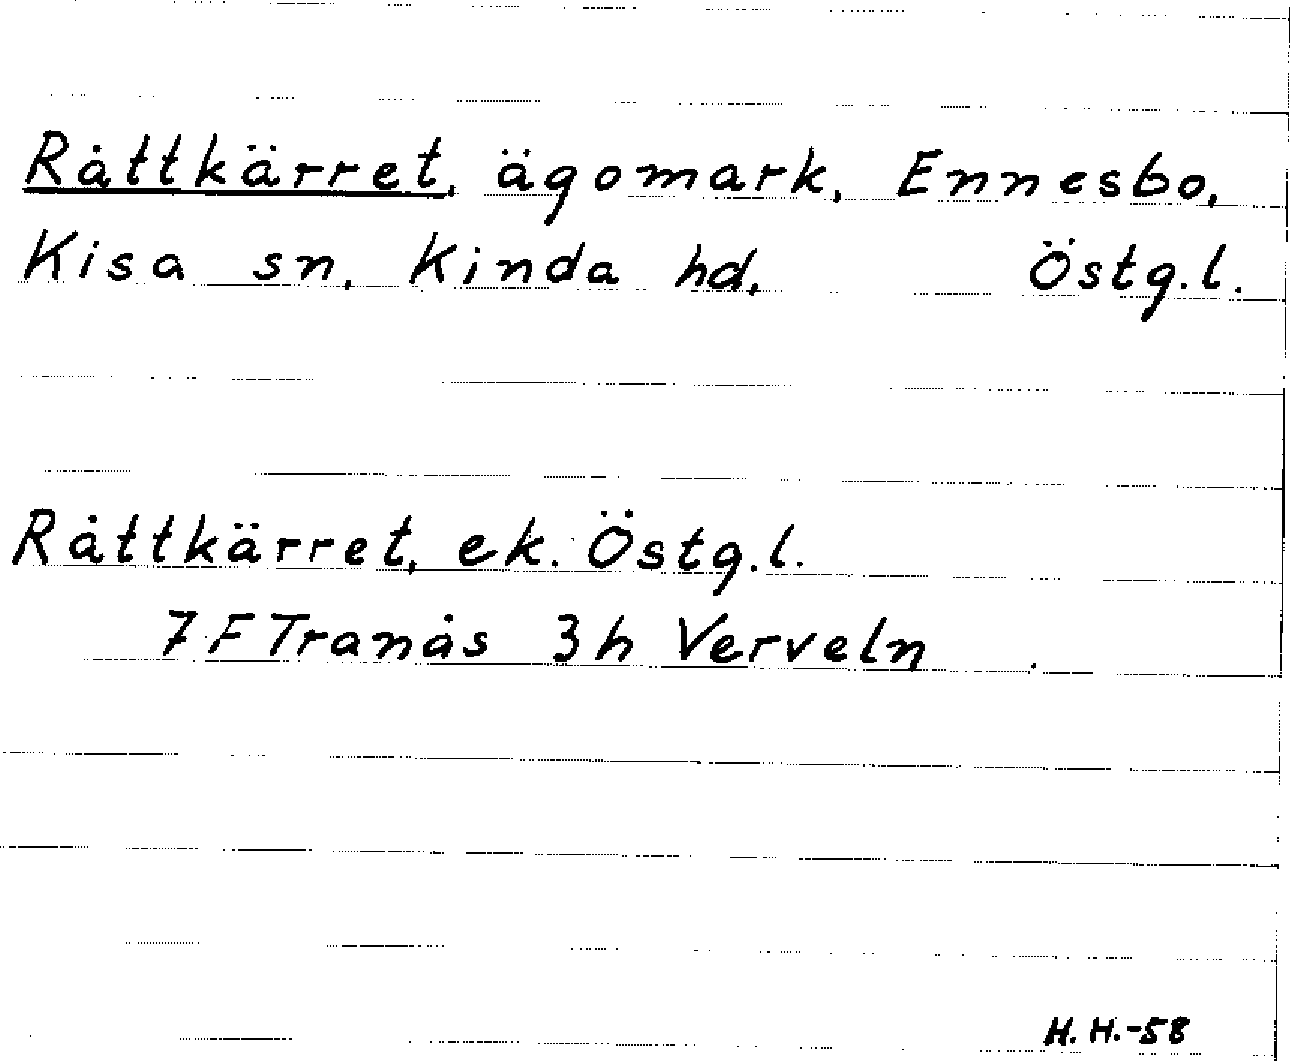 Råttkärret, ägomark, Ennesbo,
Kisa sn, Kinda hd, Östg.l.
Råttkärret, ek. Östg.l.
7 F Tranås 3 h Verveln
H. H.-58